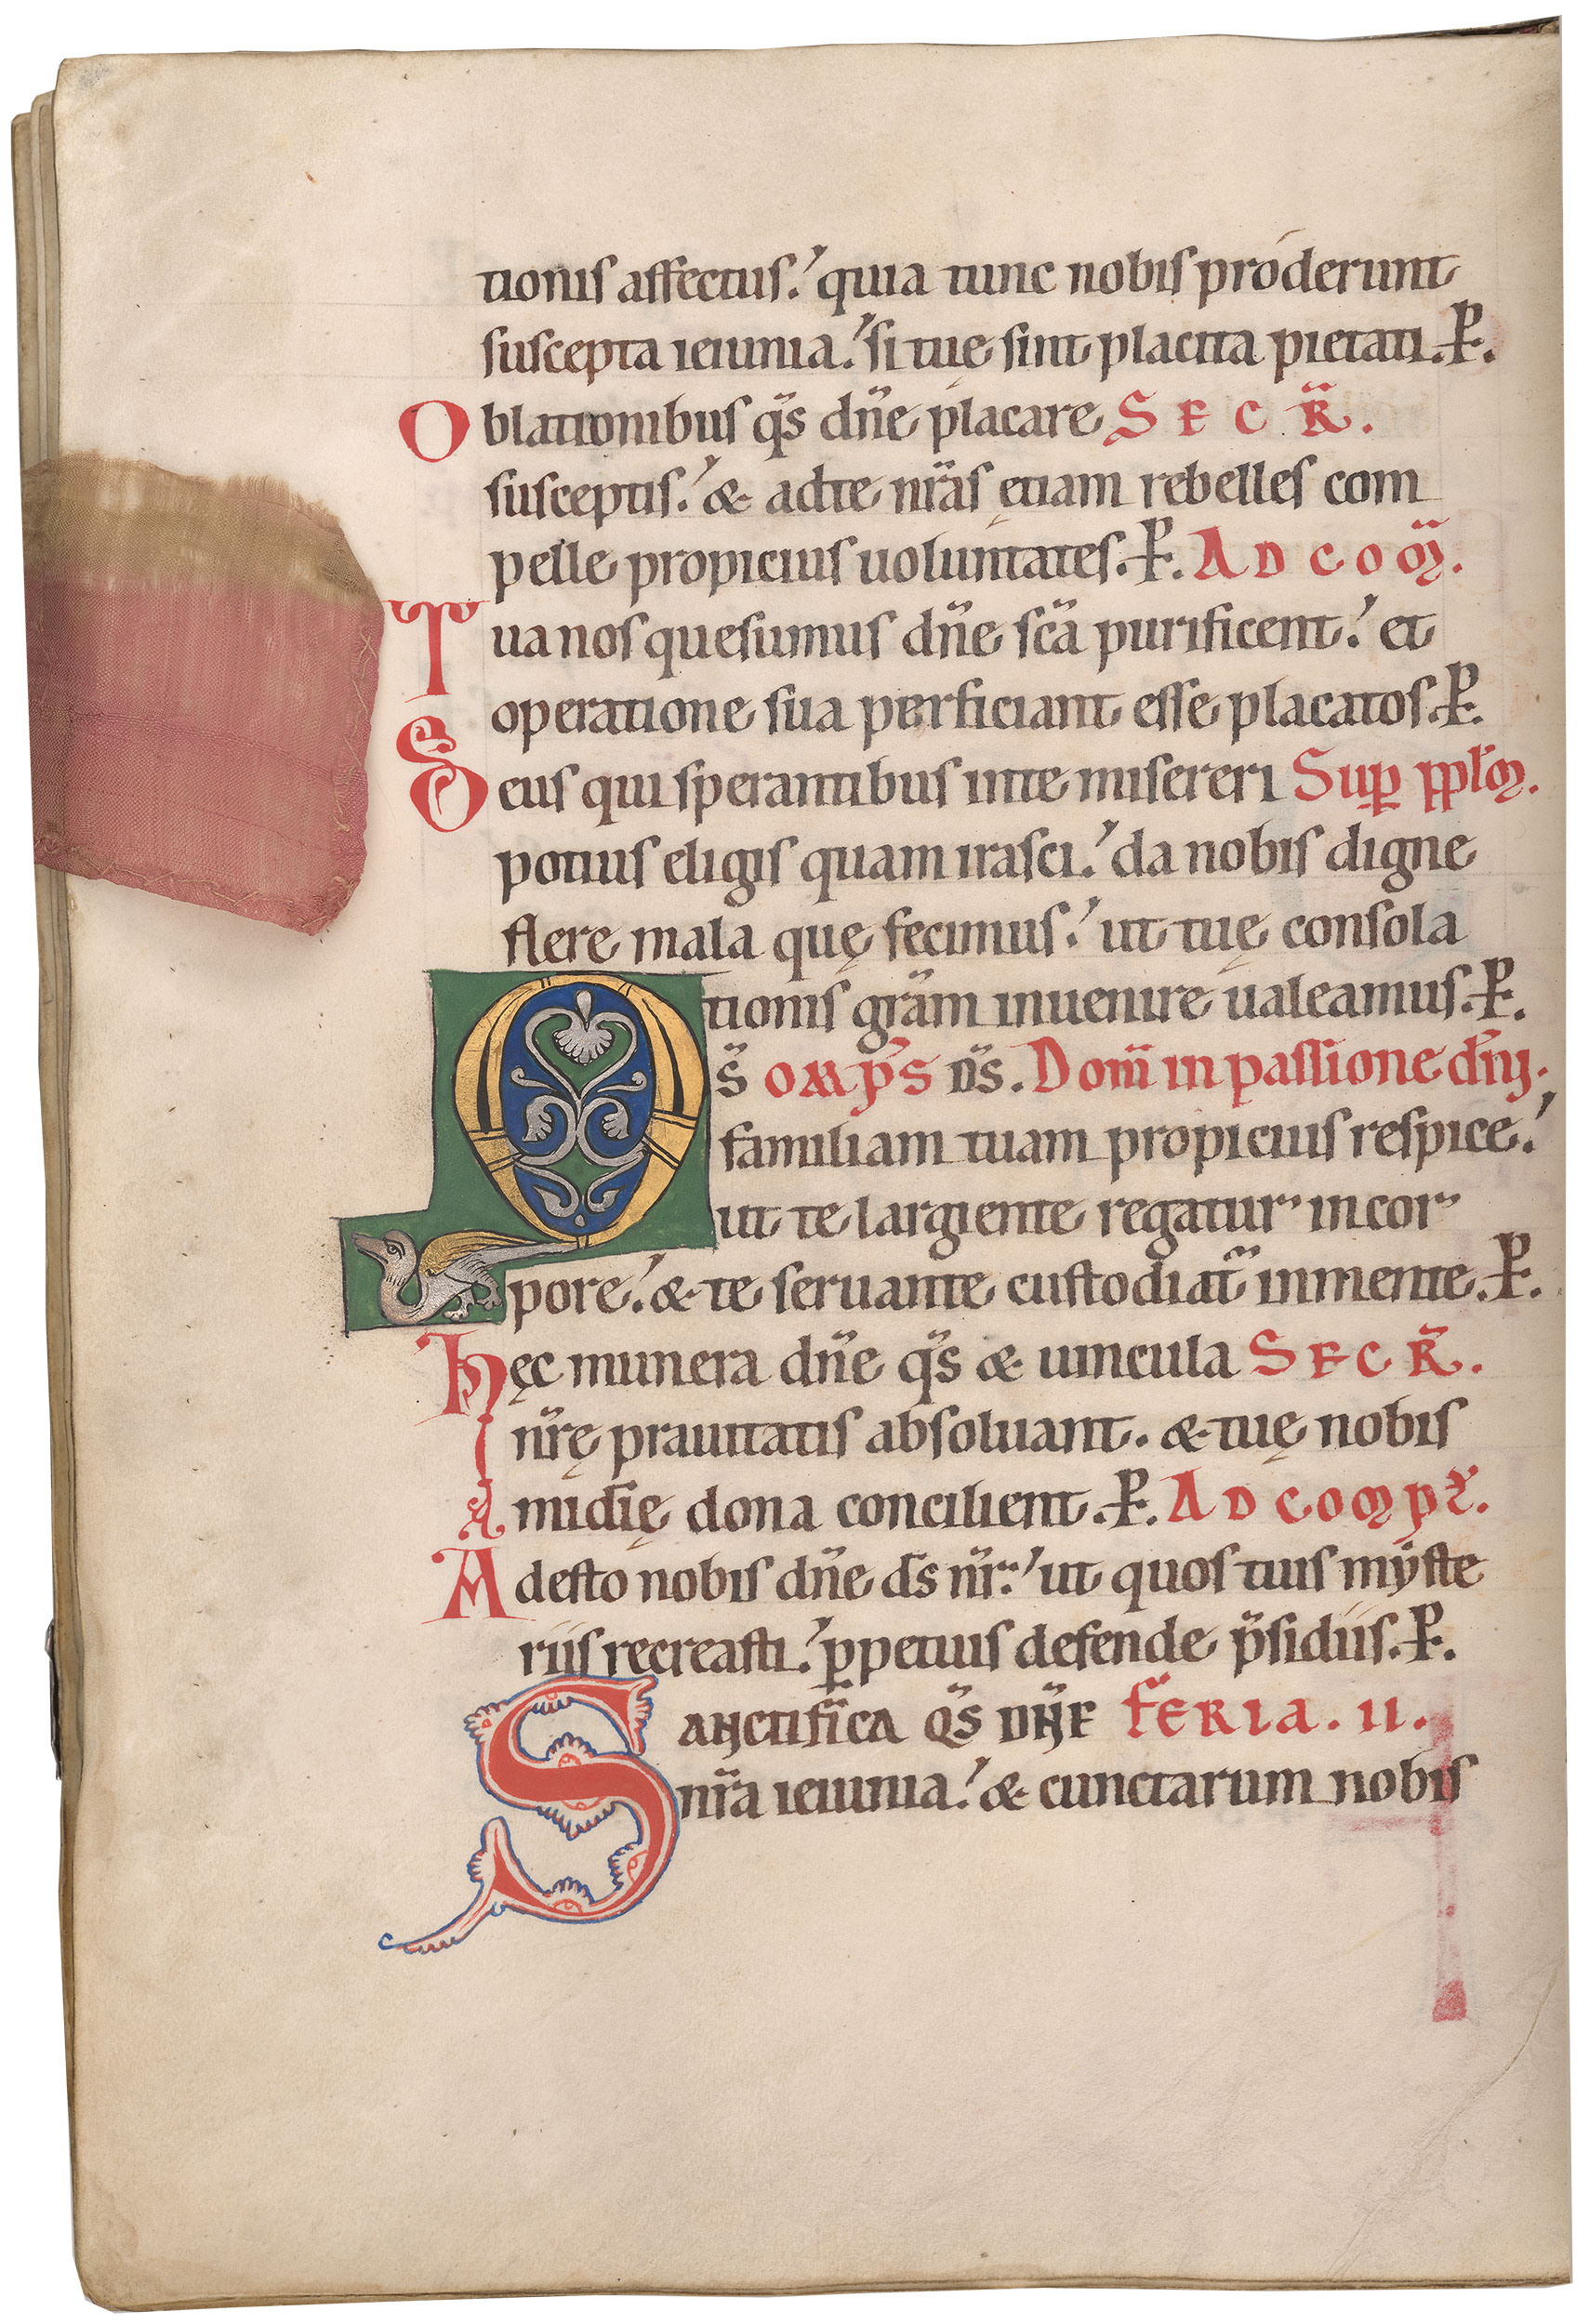 tionis affectus. quia tunc nobis próderunt
suscepta ieiunia. si tuę sint placita pietati. P.
Oblationibus q̃s dñe placare SECR̃.
susceptis. & adte nr̃as ętiam rebelles com
pelle propicius uoluntates. P. AD COM̃.
Tua nos quesumus dñe sc̃a purificent. et
operatione sua perficiant esse placatos. P.
Deus qui sperantibus inte misereri Sup̱ pp̱lm̃.
potius eligis quam irasci. da nobis digne
flere mala quę fecimus. ut tuę consola
tionis gr̃am inuenire ualeamus. P.
Qs̃ OMP̃S DS̃. Dom̃ in passione dñi.
familiam tuam propicius respice.
ut te largiente regatur in cor
pore. & te seruante custodiat̃ inmente. P.
Hęc munera dñe q̃s & uincula SECR̃.
nr̃ę prauitatis absoluant. & tuę nobis
mĩdię dona concilient. P. AD COMP̃L.
Adesto nobis dñe ds̃ nr̃. ut quos tuis myste
riis recreasti. p̱petuis defende p̃sidiis. P.
SANCTIFICA Q̃S DÑE FERIA. II.
nr̃a ieiunia. & cunctarum nobis